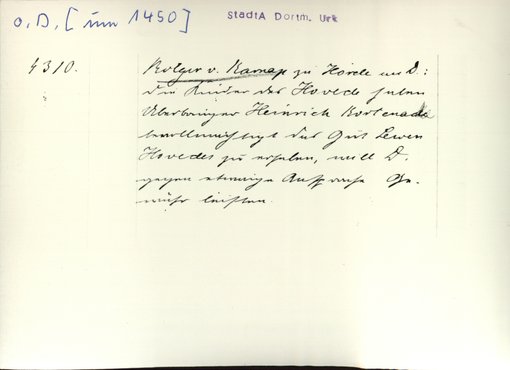 o. D. [um 1450]
StadtA Dortm. Urk
4310.
Rotger v. Karnap zu Hörde an D.:
Die Kinder des Hovede haben
Überbringer Heinrich Kortenacke
bevollmächtigt das Gut
Hovedes zu erheben, will D.
gegen etwaige Ansprache Ge-
währ leisten.